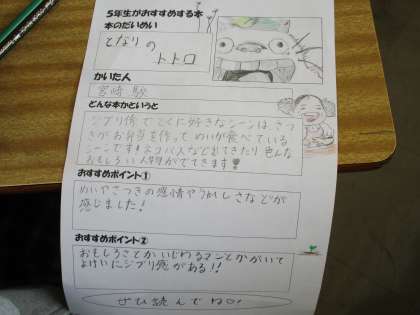 5年生がおすすめする本
本のだいめい
となりの
トトロ
かいた人
宮崎 駿
どんな本かというと
ジブリ作でとくに好きなシーンは、さつ
きがお弁当を作って、めいが食べている
シーンです!ネコバスなどもでてきたり色んな
おもしろい人物がでてきます!
おすすめポイント①
めいやさつきの感情やうれしさなどが
感じました!
おすすめポイント②
おもしろさとか
がかいて
よけいにジブリ感がある!!
ぜひ読んでね